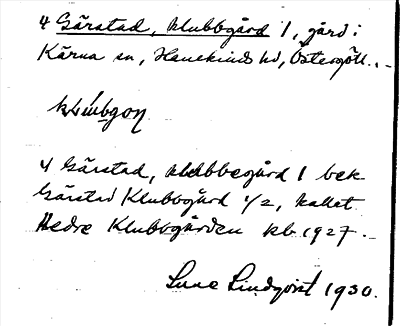 4 Gärstad, Klubbgård 1, gård i
Kärna sn, Hanekinds hd, Östergötl.
4 Gärstad, Klubbegård 1 bek
Gärstad Klubbgård 1/2, kallat
Nedre Klubbgården kb. 1927.
Sune Lindqvist 1930.